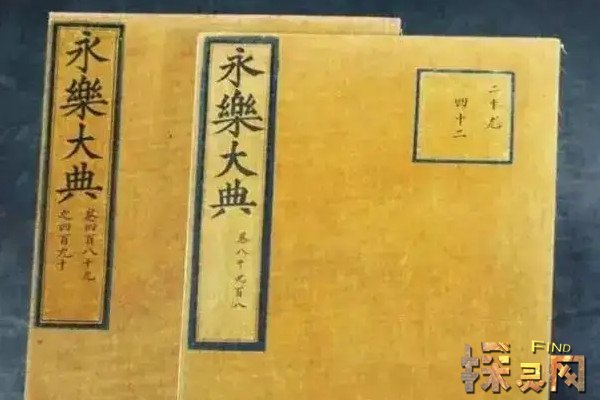 永樂大典
卷四百八十九
之四百九十
永樂大典
卷八千九百八
二十尤
四十二
FIND
探灵网